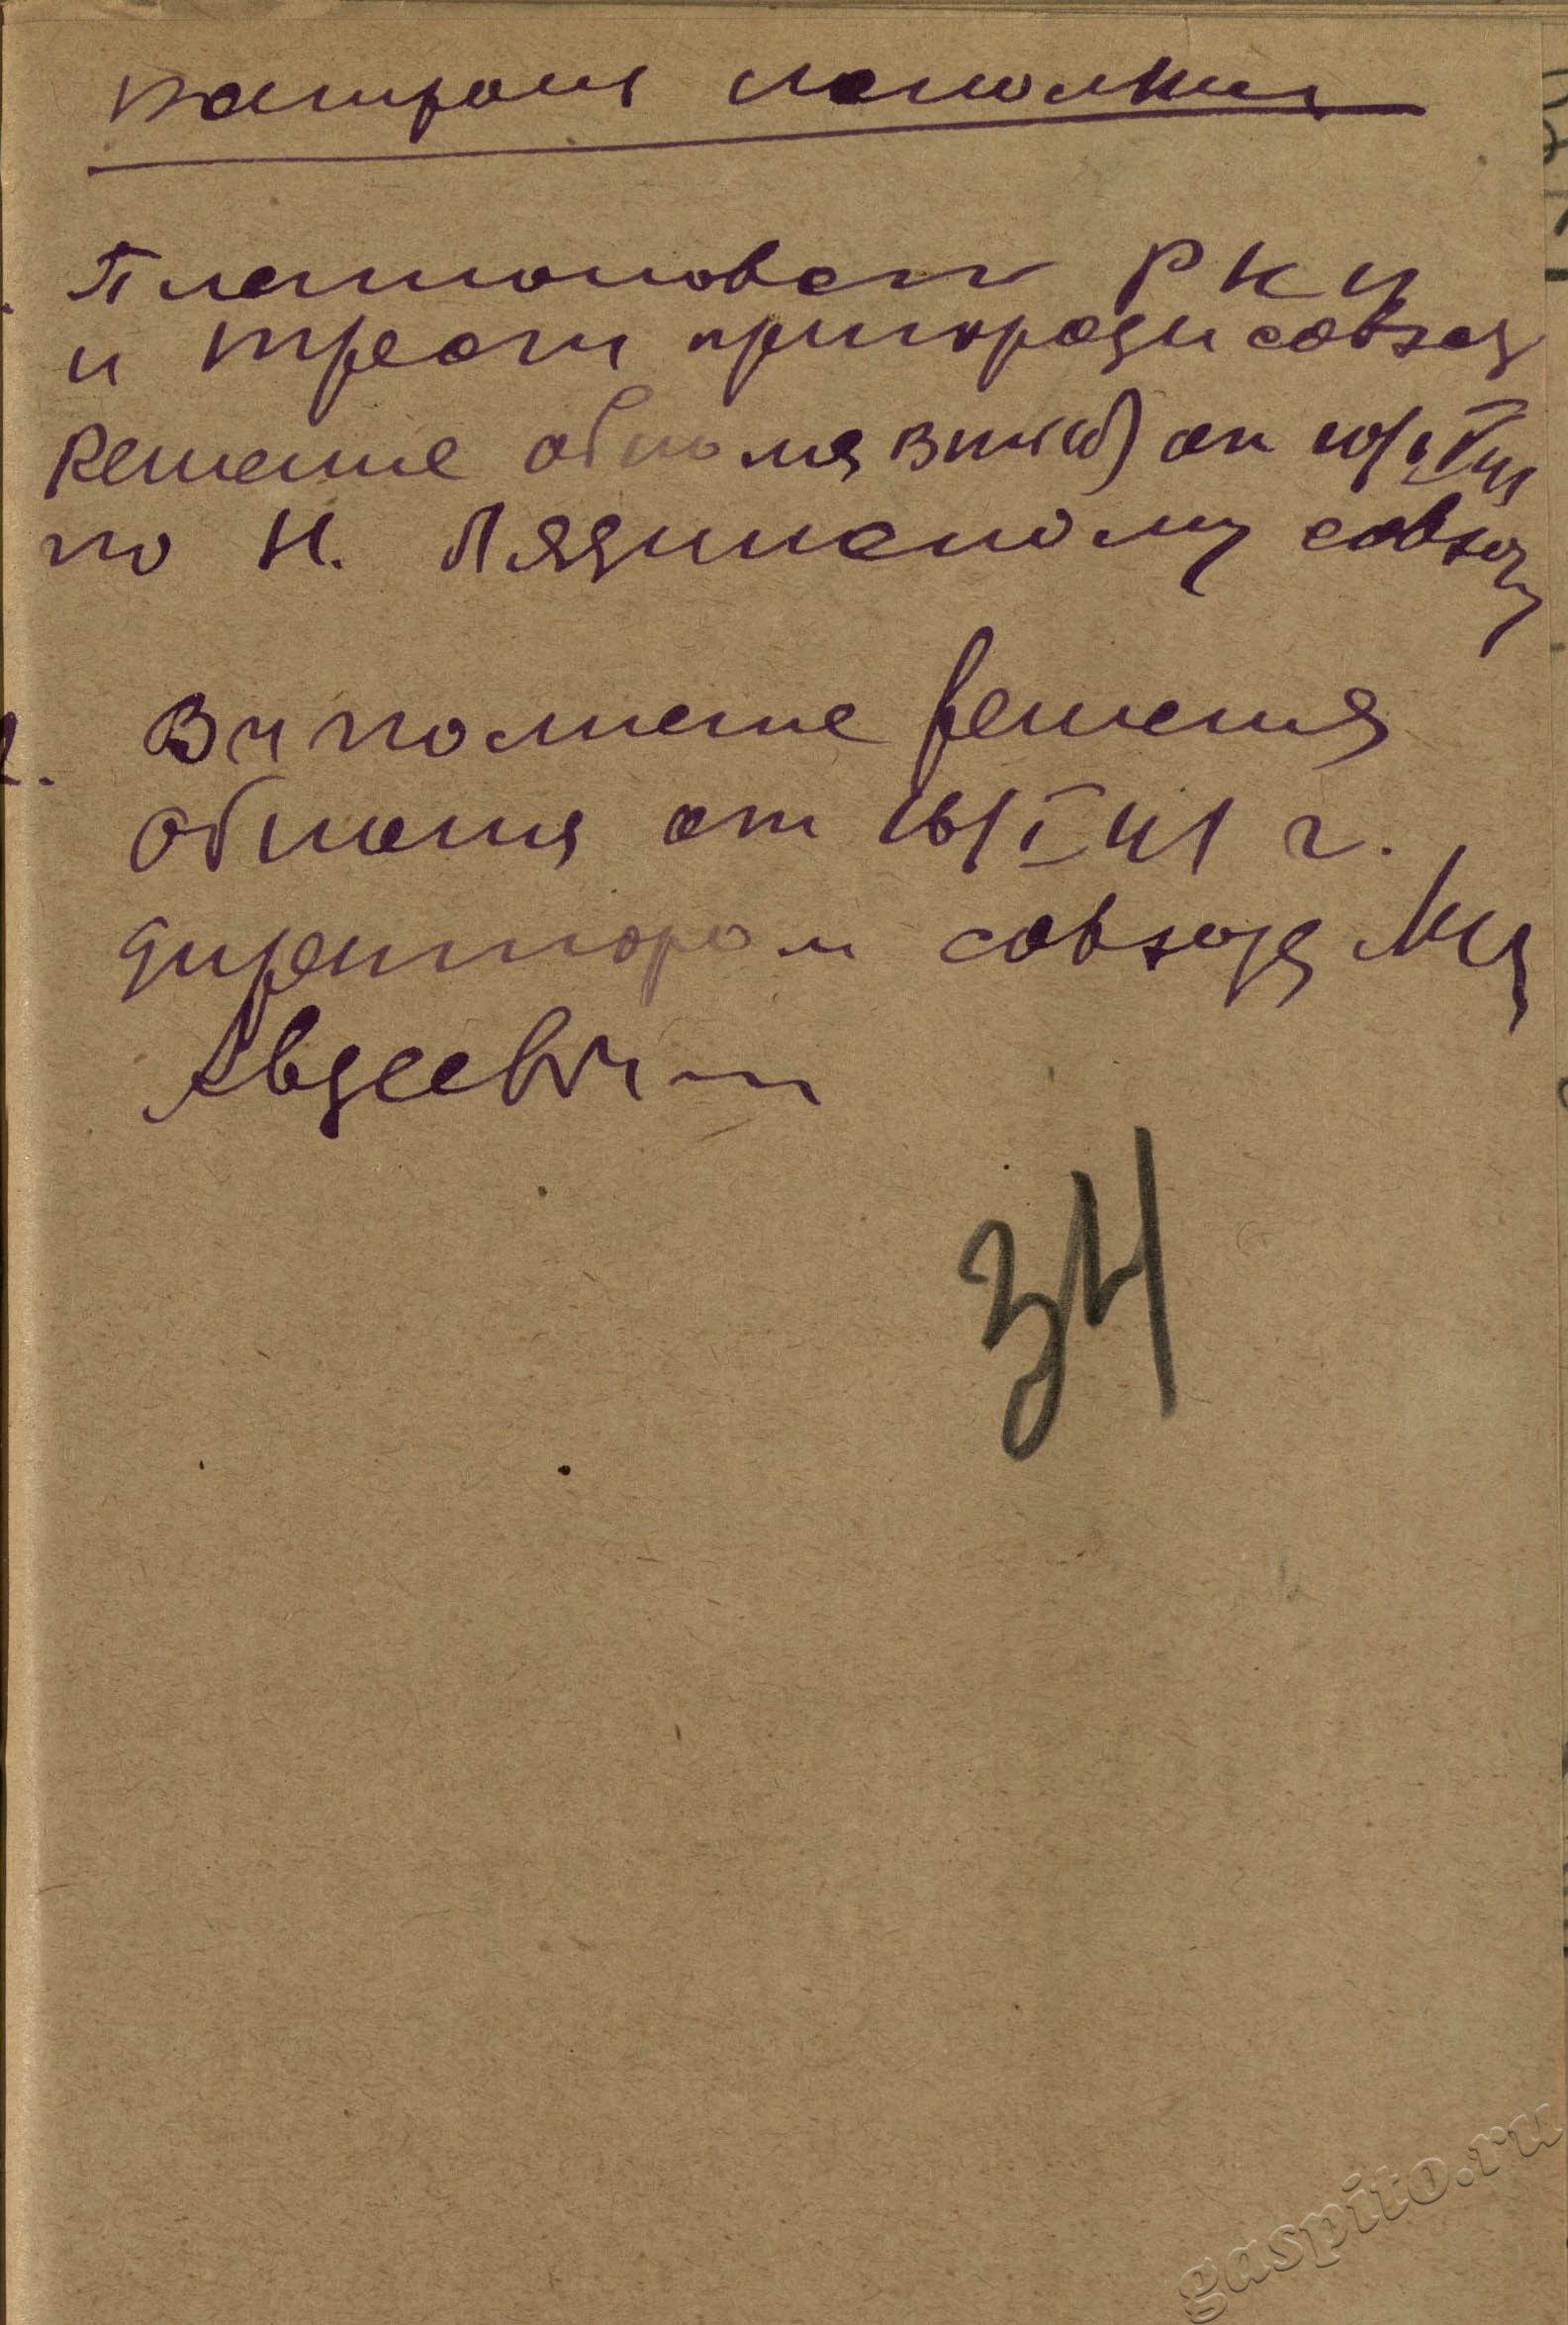 Контроль исполнен
1. Платоновск РКИ
и трест пригородн совхоз
Решение обкома ВКП(б) от
по Н. Лядинскому совхозу
2. Выполнение решения
обкома от 16/I 41 г.
директором совхоза
Авдеевым
34
gaspito.ru